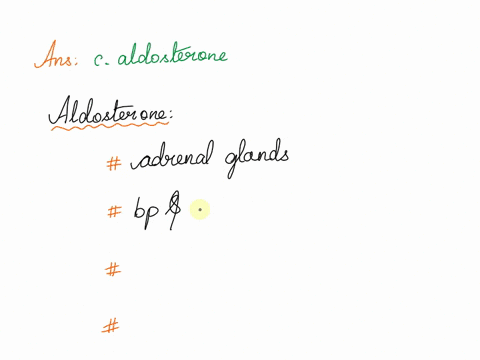 Ans: c. aldosterone
Aldosterone:
# adrenal glands
# bp &
#
#